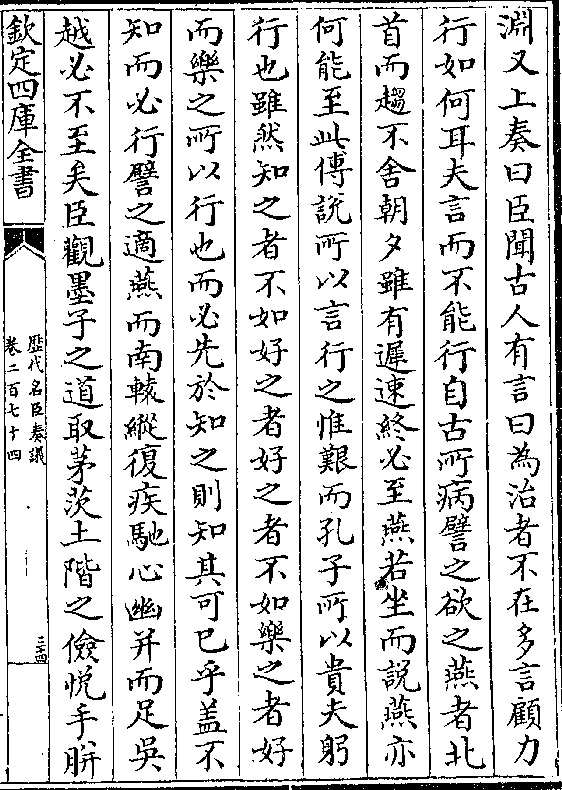 淵又上奏曰臣聞古人有言曰為治者不在多言顧力
行如何耳夫言而不能行自古所病譬之欲之燕者北
首而趨不舍朝夕雖有遲速終必至燕若坐而說燕亦
何能至此傅說所以言行之惟艱而孔子所以貴夫躬
行也雖然知之者不如好之者好之者不如樂之者好
而樂之所以行也而必先於知之則知其可已乎盖不
知而必行譬之適燕而南轅縱復疾馳心幽并而足吳
越必不至矣臣觀墨子之道取茅茨土階之儉悅手胼
欽定四庫全書
歷代名臣奏議
卷二百七十四
三十四